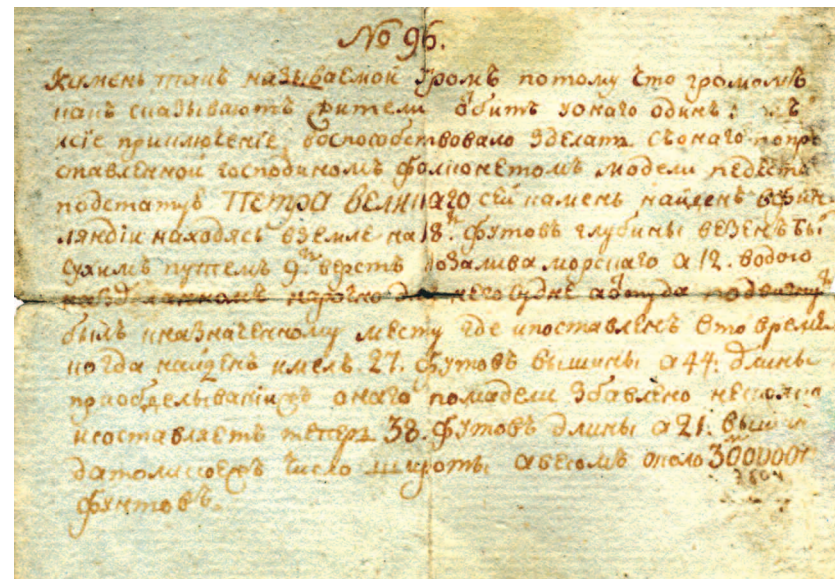 № 96.
Камень такъ называемой Громъ потому что громомъ
какъ сказываютъ жители обитъ уонаго одинъ
ксіе приключеніе, воспособствовало зделать съонаго попре
ставленной господиномъ фолконетомъ модели педеста
подстатуе ПЕТРА ВЕЛИКАГО сей камень найденъ вфин
ляндіи находясь вземле на 18. футовъ глубины везенъ бы
сухимъ путемъ 9. верстъ дозалива морскаго а 12. водою
назделанномъ нарочно для него судне аоттуда подвинут
былъ кназначенному месту где ипоставленъ вто время
когда найденъ имелъ 27. футовъ вышины а 44. длины
приобделываніи онаго помадели збавлено несколко
исоставляетъ теперь 38. футовъ длины а 21. вышин
датоликоежъ число широты авесомъ около 3000000
фунтовъ.